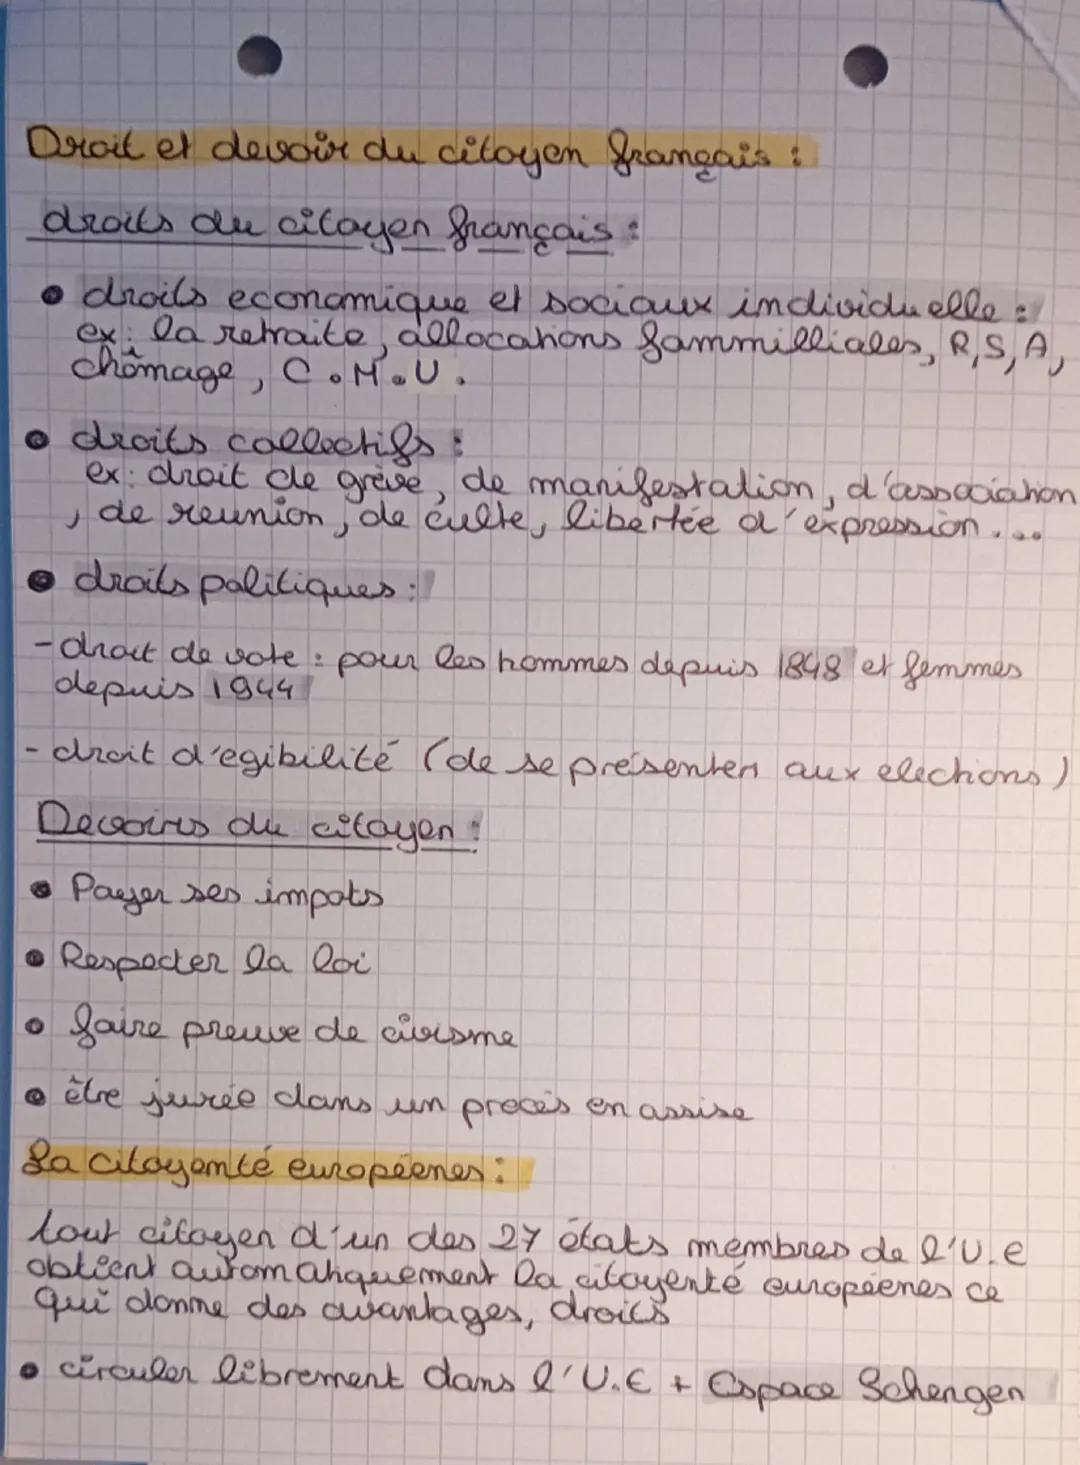 Droit et devoir du citoyen français :
droits du citoyen français :
• droits economique et sociaux individuelle :
ex : la retraite, allocations fammilliales, R,S,A,
chômage, C.M.U.
• droits collectifs :
ex : droit de grève, de manifestation, d'association
, de reunion, de culte, libertée d'expression....
• droits politiques :
- droit de vote : pour les hommes depuis 1848 et femmes
depuis 1944
- droit d'egibilité (de se présenter aux elections)
Devoirs du citoyen :
• Payer ses impots
• Respecter la loi
• faire preuve de civisme
• être jurée dans un procès en assise
La citoyenté européenes :
tout citoyen d'un des 27 états membres de l'U.e
obtient automatiquement la citoyenté européenes ce
qui donne des avantages, droits
• circuler librement dans l'U.E + Espace Schengen